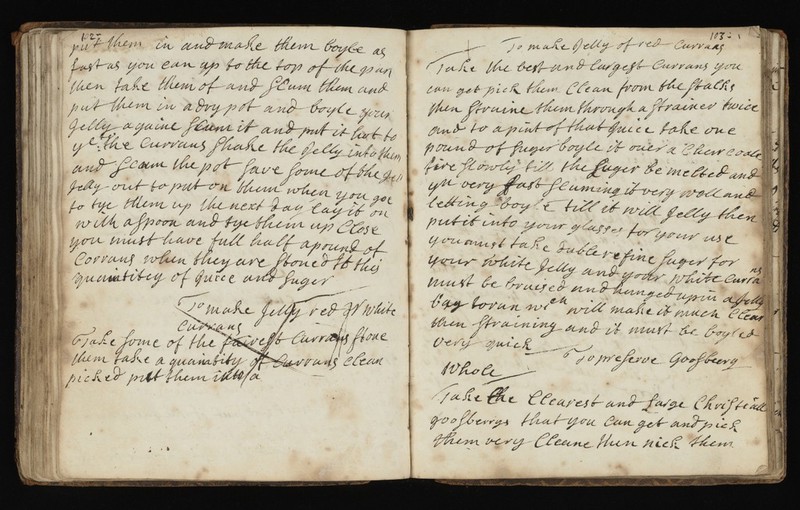 102
put them in and make them boyle as
fast as you can up to the top of the pan
then take them of and scum them and
put them in a dry pot and boyle your
Jelly againe scum it and put it hot to
ye the Currans shake the Jelly into them
and scum the pot save some of the Jelly
Jelly out to put on them when you goe
to tye them up the next day lay it on
with a spoon and tye them up Close
you must have full half a pound of
Corrans when they are stoned to this
quantitey of Juice and suger
To make Jelly red or white
Currans
Take some of the Currans stone
them take a quantity of Currans Clean
picked put them into a
103
To make Jelly of red Currans
Take the best and largest Currans you
can get pick them Clean from the stalks
then straine them through a strainer twice
and to a pint of that Juice take one
pound of suger boyle it over a Cleer coale
fire slowly till the suger be melted and
yn very fast scuming it very well and
letting boyle till it will Jelly then
put it into your glasses for your use
you must take duble refine suger for
your white Jelly and your white Currans
must be brused and hunged up in a Jelly
bag to run wch will make it much Clear
then straining and it must be boyled
very quick
To preserve Goosbeery
whole
Take the Clearest and large Christiall
goosberrys that you Can get and pick
them very Cleane then nick them